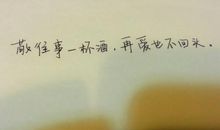 敬往事一杯酒,再爱也不回头。